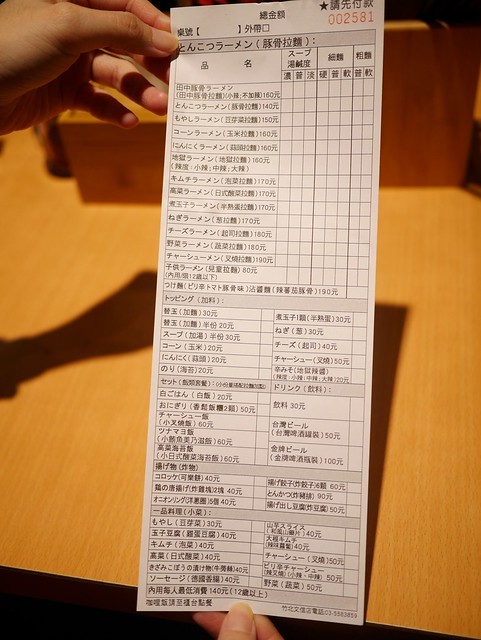 總金額
★請先付款
002581
桌號【 】外帶口
とんこつラーメン(豚骨拉麵):
品 名
スープ 湯鹹度
細麵
粗麵
濃 普 淡 硬 普 軟 普 軟
田中豚骨ラーメン
(田中豚骨拉麵)(小辣;不加辣)160元
とんこつラーメン(豚骨拉麵)140元
もやしラーメン(豆芽菜拉麵)150元
コーンラーメン(玉米拉麵)160元
にんにくラーメン(蒜頭拉麵)160元
地獄ラーメン(地獄拉麵)160元
(辣度:小辣;中辣;大辣)
キムチラーメン(泡菜拉麵)170元
高菜ラーメン(日式酸菜拉麵)170元
煮玉子ラーメン(半熟蛋拉麵)170元
ねぎラーメン(葱拉麵)170元
チーズラーメン(起司拉麵)180元
野菜ラーメン(蔬菜拉麵)180元
チャーシューメン(叉燒拉麵)190元
子供ラーメン(兒童拉麵)80元
(內用/限12歲以下)
つけ麵(ピリ辛トマト豚骨味)沾醬麵(辣蕃茄豚骨)190元
トッピング(加料):
替玉(加麵)30元
替玉(加麵)半份20元
スープ(加湯)30元
コーン(玉米)20元
にんにく(蒜頭)20元
のり(海苔)20元
煮玉子1顆(半熟蛋)30元
ねぎ(葱)30元
チーズ(起司)40元
チャーシュー(叉燒)50元
辛みそ(地獄辣醬)
(辣度:小辣;中辣;大辣)20元
セット(飯類套餐):(小份量搭配拉麵加點)
白ごはん(白飯)20元
おにぎり(香鬆飯糰2顆)50元
チャーシュー飯
(小叉燒飯)60元
ツナマヨ飯
(小鮪魚美乃滋飯)60元
高菜海苔飯
(小日式酸菜海苔飯)60元
ドリンク(飲料):
飲料 30元
台湾ビール
(台灣啤酒罐裝)50元
金牌ビール
(金牌啤酒瓶裝)100元
揚げ物(炸物)
コロッケ(可樂餅)40元
鶏の唐揚げ(炸雞塊)2塊 40元
オニオンリング(洋蔥圈)5個 40元
揚げ餃子(炸餃子)6顆 60元
とんかつ(炸豬排)90元
揚げ出し豆腐(炸豆腐)50元
一品料理(小菜):
もやし(豆芽菜)30元
玉子豆腐(雞蛋豆腐)40元
キムチ(泡菜)40元
高菜(日式酸菜)40元
きざみごぼうの漬け物(牛蒡絲)40元
ソーセージ(德國香腸)40元
山芋スライス
(和風山藥片)40元
大根キムチ
(辣味蘿蔔)40元
チャーシュー(叉燒)50元
ピリ辛チャーシュー
(辣叉燒)(小辣、中辣)50元
野菜(蔬菜)50元
內用每人最低消費140元(12歲以上)
咖哩飯請至櫃台點餐
竹北文信店電話03-5583859